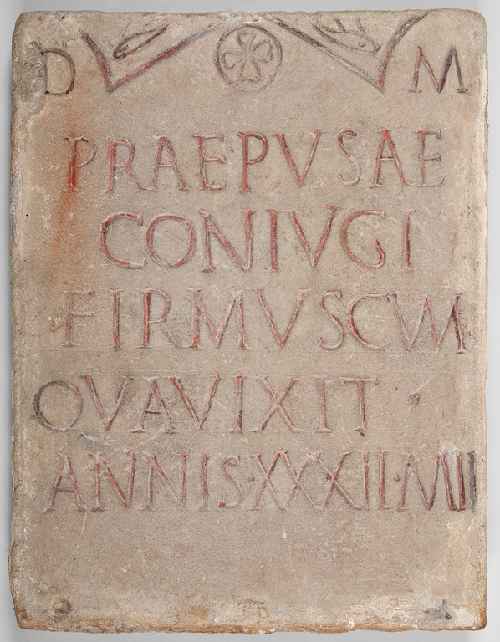 D M
PRAEPVSAE
CONIVGI
FIRMVS CVM
QVA VIXIT
ANNIS·XXXII·MII